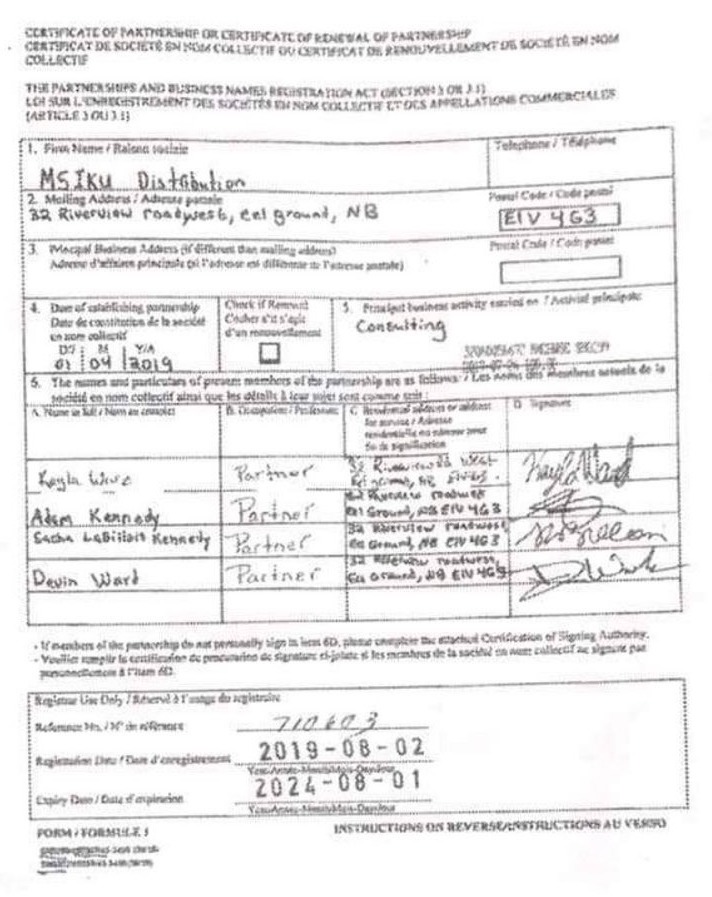 CERTIFICATE OF PARTNERSHIP OR CERTIFICATE OF RENEWAL OF PARTNERSHIP
CERTIFICAT DE SOCIÉTÉ EN NOM COLLECTIF OU CERTIFICAT DE RENOUVELLEMENT DE SOCIÉTÉ EN NOM
COLLECTIF
THE PARTNERSHIPS AND BUSINESS NAMES REGISTRATION ACT (SECTION 3 OR 3.1)
LOI SUR L'ENREGISTREMENT DES SOCIÉTÉS EN NOM COLLECTIF ET DES APPELLATIONS COMMERCIALES
(ARTICLE 3 OU 3.1)
1. Firm Name / Raison sociale
Telephone / Téléphone
MSIKU Distribution
2. Mailing Address / Adresse postale
Postal Code / Code postal
32 Riverview roadwest, eel ground, NB
E1V 4G3
3. Principal Business Address (if different than mailing address)
Adresse d'affaires principale (si l'adresse est différente de l'adresse postale)
Postal Code / Code postal
4. Date of establishing partnership
Date de constitution de la société
en nom collectif
D/J M Y/A
01 04 2019
Check if Renewal
Cocher s'il s'agit
d'un renouvellement
5. Principal business activity carried on / Activité principale
Consulting
6. The names and particulars of present members of the partnership are as follows: / Les noms des membres actuels de la
société en nom collectif ainsi que les détails à leur sujet sont comme suit :
A. Name in full / Nom au complet
B. Occupation / Profession
C. Residential address or address
for service / Adresse
résidentielle ou adresse pour
fin de signification
D. Signature
Kayla Ward
Partner
Kayla Ward
Adam Kennedy
Partner
32 Riverview roadwest
Eel Ground, NB E1V 4G3
Sacha LaBillois Kennedy
Partner
32 Riverview roadwest,
Eel Ground, NB E1V 4G3
Devin Ward
Partner
32 Riverview roadwest,
Eel Ground, NB E1V 4G3
- If members of the partnership do not personally sign in item 6D, please complete the attached Certification of Signing Authority.
- Veuillez remplir la certification de procuration de signature ci-jointe si les membres de la société en nom collectif ne signent pas
personnellement à l'item 6D.
Registrar Use Only / Réservé à l'usage du registraire
Reference No. / N° de référence
710603
Registration Date / Date d'enregistrement
2019-08-02
Year-Année-Month/Mois-Day/Jour
Expiry Date / Date d'expiration
2024-08-01
Year-Année-Month/Mois-Day/Jour
FORM / FORMULE 1
INSTRUCTIONS ON REVERSE/INSTRUCTIONS AU VERSO